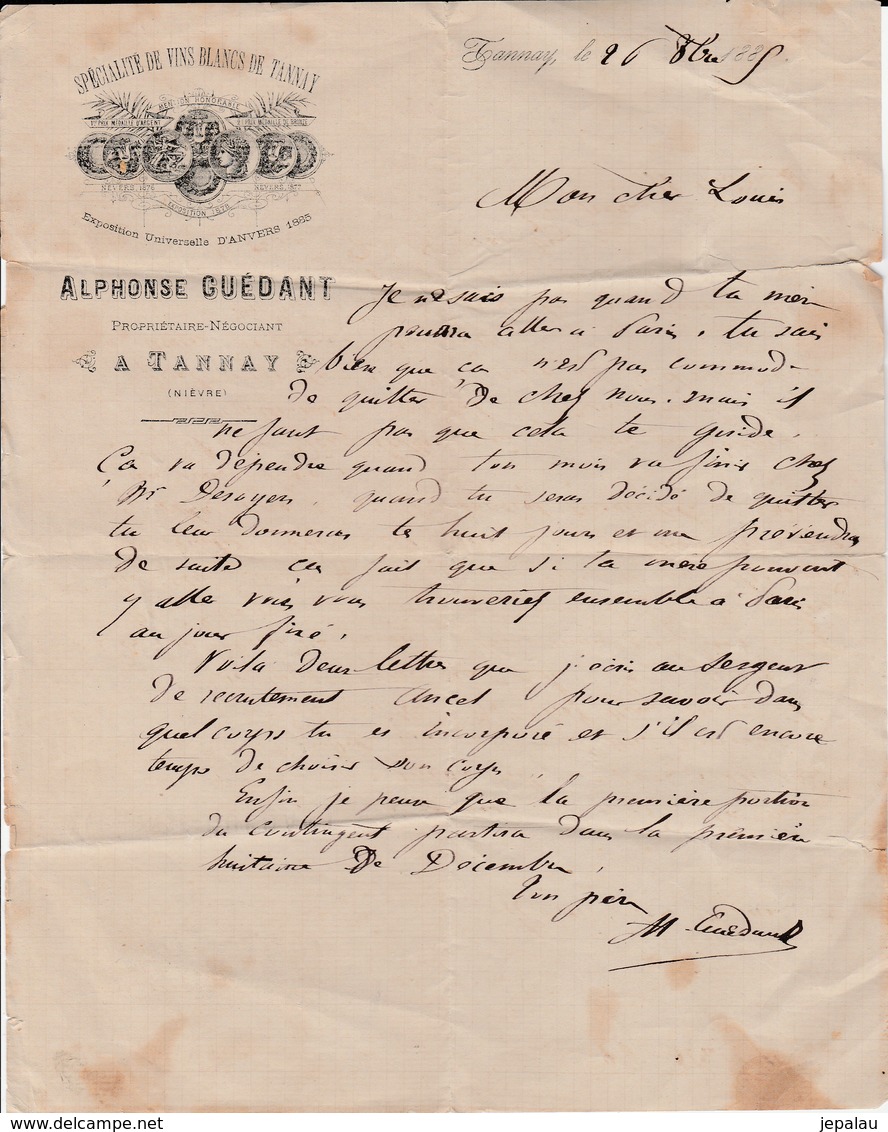 SPÉCIALITÉ DE VINS BLANCS DE TANNAY
MENTION HONORABLE
1er PRIX MÉDAILLE D'ARGENT
2e PRIX MÉDAILLE DE BRONZE
NEVERS, 1876
NEVERS, 1877
EXPOSITION 1878
Exposition Universelle D'ANVERS 1885
ALPHONSE GUÉDANT
PROPRIÉTAIRE-NÉGOCIANT
A TANNAY
(NIÈVRE)
Tannay, le 26 8bre 1885
Mon cher Louis
Je ne sais pas quand ta mère
pourra aller à Paris, tu sais
bien que ça n'est pas commode
de quitter de chez nous, mais il
ne faut pas que cela te guide.
Ça va dépendre quand ton mois va finir chez
Mr Desoyer, quand tu seras décidé de quitter
tu leur donneras ta huit jours et me préviendras
de suite ça fait que si ta mère pouvait
y aller vous vous trouveriez ensemble à Paris
au jour fixé.
Voilà deux lettre que j'écris au sergent
de recrutement Ancel pour savoir dans
quel corps tu es incorporé et s'il est encore
temps de choisir son corps.
Enfin je pense que la première portion
du contingent partira dans la première
huitaine de Décembre.
Ton père
Guédant
www.delcampe.net
jepalau